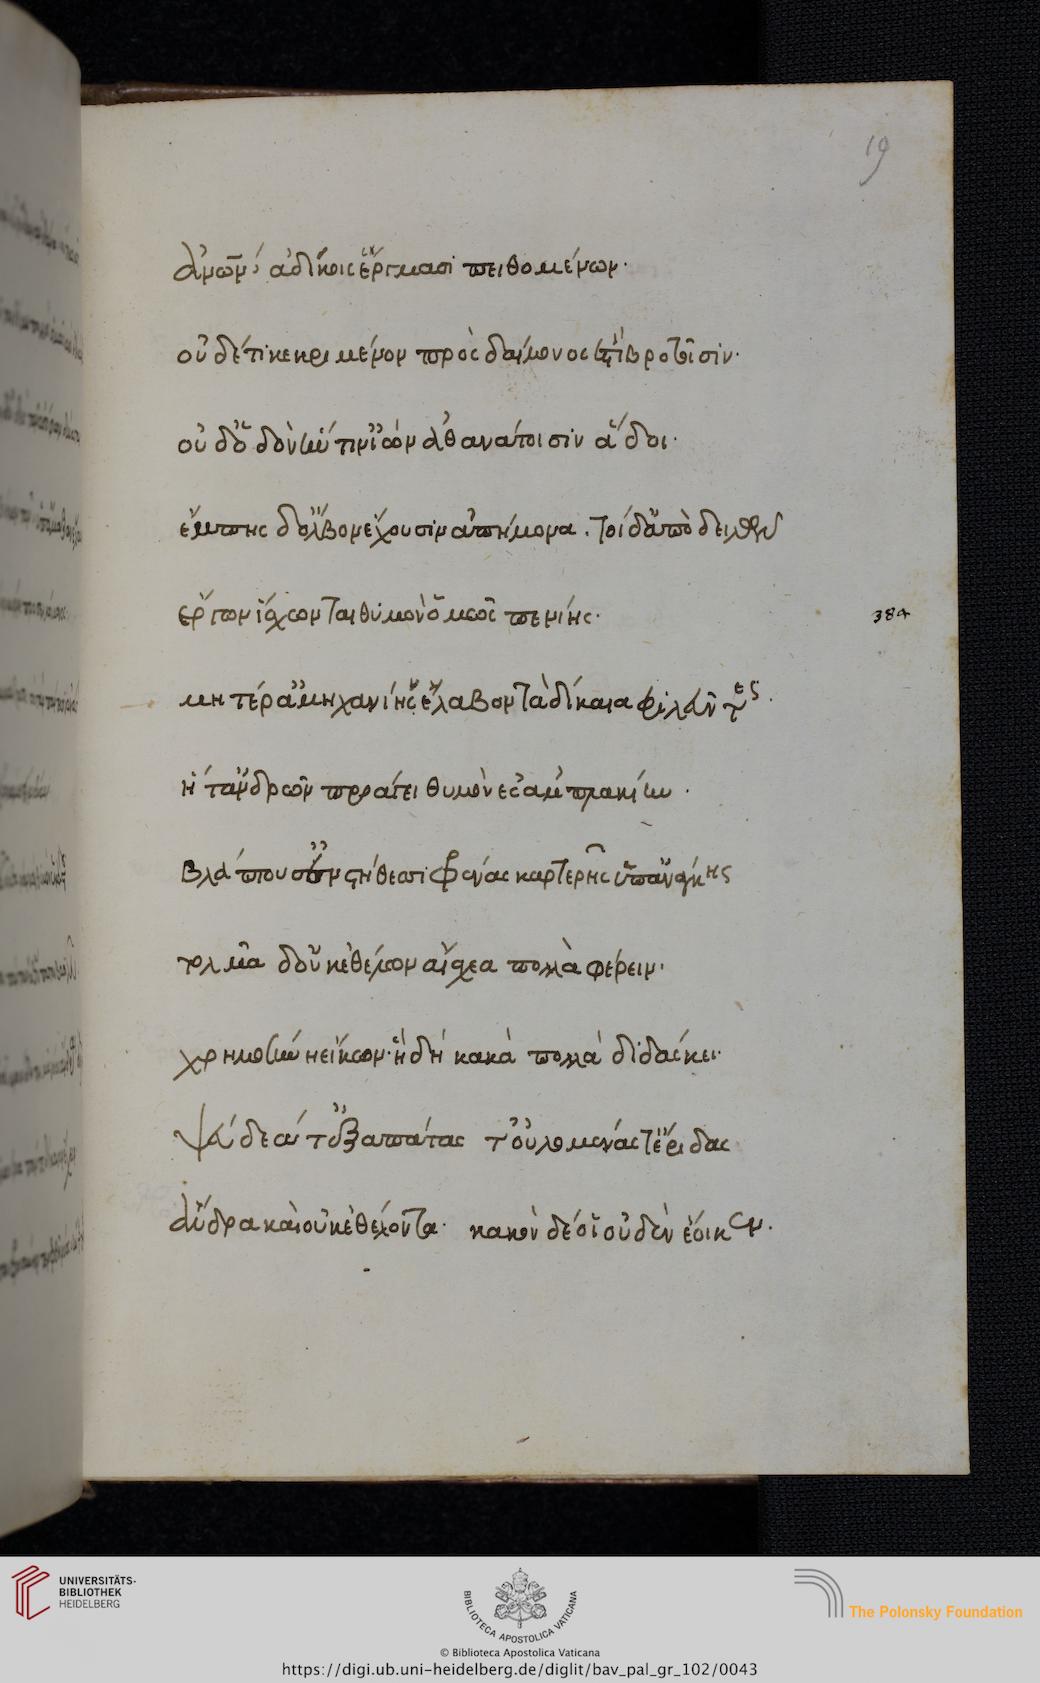 19
ἀνῶν, ἀδίκοις ἔργμασι πειθομένων·
οὐδέ τι κεκριμένον πρὸς δαίμονος ἐστὶ βροτοῖσιν·
οὐδ' ὁδὸν ἥν τιν' ἰὼν ἀθανάτοισιν ἅδοι·
ἔμπης δ' ὄλβον ἔχουσιν ἀπήμονα. τοὶ δ' ἀπὸ δειλῶν
ἔργων ἴσχωνται θυμὸν ὅμως πενίης·
384
μητέρ' ἀμηχανίης ἔλαβον τὰ δίκαια φιλεῦντες.
ἥ τ' ἀνδρῶν προάγει θυμὸν ἐς ἀμπλακίην·
βλάπτουσ' ἐν στήθεσσι φρένας κρατερῆς ὑπ' ἀνάγκης
τολμᾶ δ' οὐκ ἐθέλων αἴσχεα πολλὰ φέρειν·
χρημοσύνῃ εἴκων· ἣ δὴ κακὰ πολλὰ διδάσκει·
ψεύδεά τ' ἐξαπάτας τ' οὐλομένας τ' ἔριδας
ἄνδρα καὶ οὐκ ἐθέλοντα· κακὸν δέ οἱ οὐδὲν ἔοικεν.
UNIVERSITÄTS-
BIBLIOTHEK
HEIDELBERG
BIBLIOTECA APOSTOLICA VATICANA
The Polonsky Foundation
© Biblioteca Apostolica Vaticana
https://digi.ub.uni-heidelberg.de/diglit/bav_pal_gr_102/0043